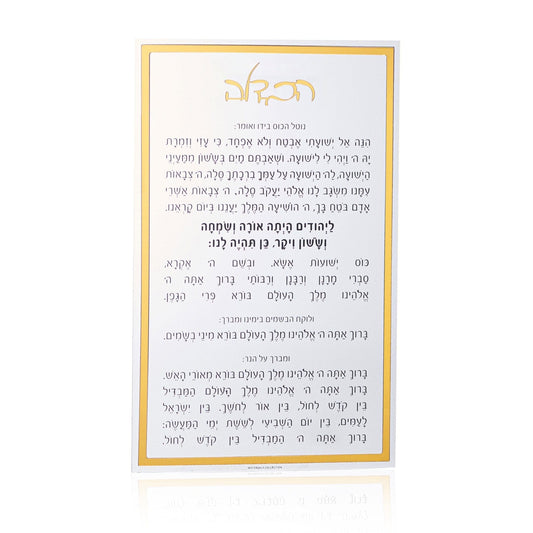 הבדלה
נוטל הכוס בידו ואומר:
הִנֵּה אֵל יְשׁוּעָתִי אֶבְטַח וְלֹא אֶפְחָד, כִּי עָזִּי וְזִמְרָת
יָהּ ה' וַיְהִי לִי לִישׁוּעָה. וּשְׁאַבְתֶּם מַיִם בְּשָׂשׂוֹן מִמַּעַיְנֵי
הַיְשׁוּעָה, לַה' הַיְשׁוּעָה עַל עַמְּךָ בִרְכָתֶךָ סֶּלָה, ה' צְבָאוֹת
עִמָּנוּ מִשְׂגָּב לָנוּ אֱלֹהֵי יַעֲקֹב סֶלָה, ה' צְבָאוֹת אַשְׁרֵי
אָדָם בֹּטֵחַ בָּךְ, ה' הוֹשִׁיעָה הַמֶּלֶךְ יַעֲנֵנוּ בְיוֹם קָרְאֵנוּ.
לַיְּהוּדִים הָיְתָה אוֹרָה וְשִׂמְחָה
וְשָׂשׂוֹן וִיקָר, כֵּן תִּהְיֶה לָּנוּ:
כּוֹס יְשׁוּעוֹת אֶשָּׂא, וּבְשֵׁם ה' אֶקְרָא,
סַבְרִי מָרָנָן וְרַבָּנָן וְרַבּוֹתַי בָּרוּךְ אַתָּה ה'
אֱלֹהֵינוּ מֶלֶךְ הָעוֹלָם בּוֹרֵא פְּרִי הַגֶּפֶן.
ולוקח הבשמים בימינו ומברך:
בָּרוּךְ אַתָּה ה' אֱלֹהֵינוּ מֶלֶךְ הָעוֹלָם בּוֹרֵא מִינֵי בְשָׂמִים.
ומברך על הנר:
בָּרוּךְ אַתָּה ה' אֱלֹהֵינוּ מֶלֶךְ הָעוֹלָם בּוֹרֵא מְאוֹרֵי הָאֵשׁ.
בָּרוּךְ אַתָּה ה' אֱלֹהֵינוּ מֶלֶךְ הָעוֹלָם הַמַּבְדִּיל
בֵּין קֹדֶשׁ לְחוֹל, בֵּין אוֹר לְחֹשֶׁךְ, בֵּין יִשְׂרָאֵל
לָעַמִּים, בֵּין יוֹם הַשְּׁבִיעִי לְשֵׁשֶׁת יְמֵי הַמַּעֲשֶׂה:
בָּרוּךְ אַתָּה ה' הַמַּבְדִּיל בֵּין קֹדֶשׁ לְחוֹל.